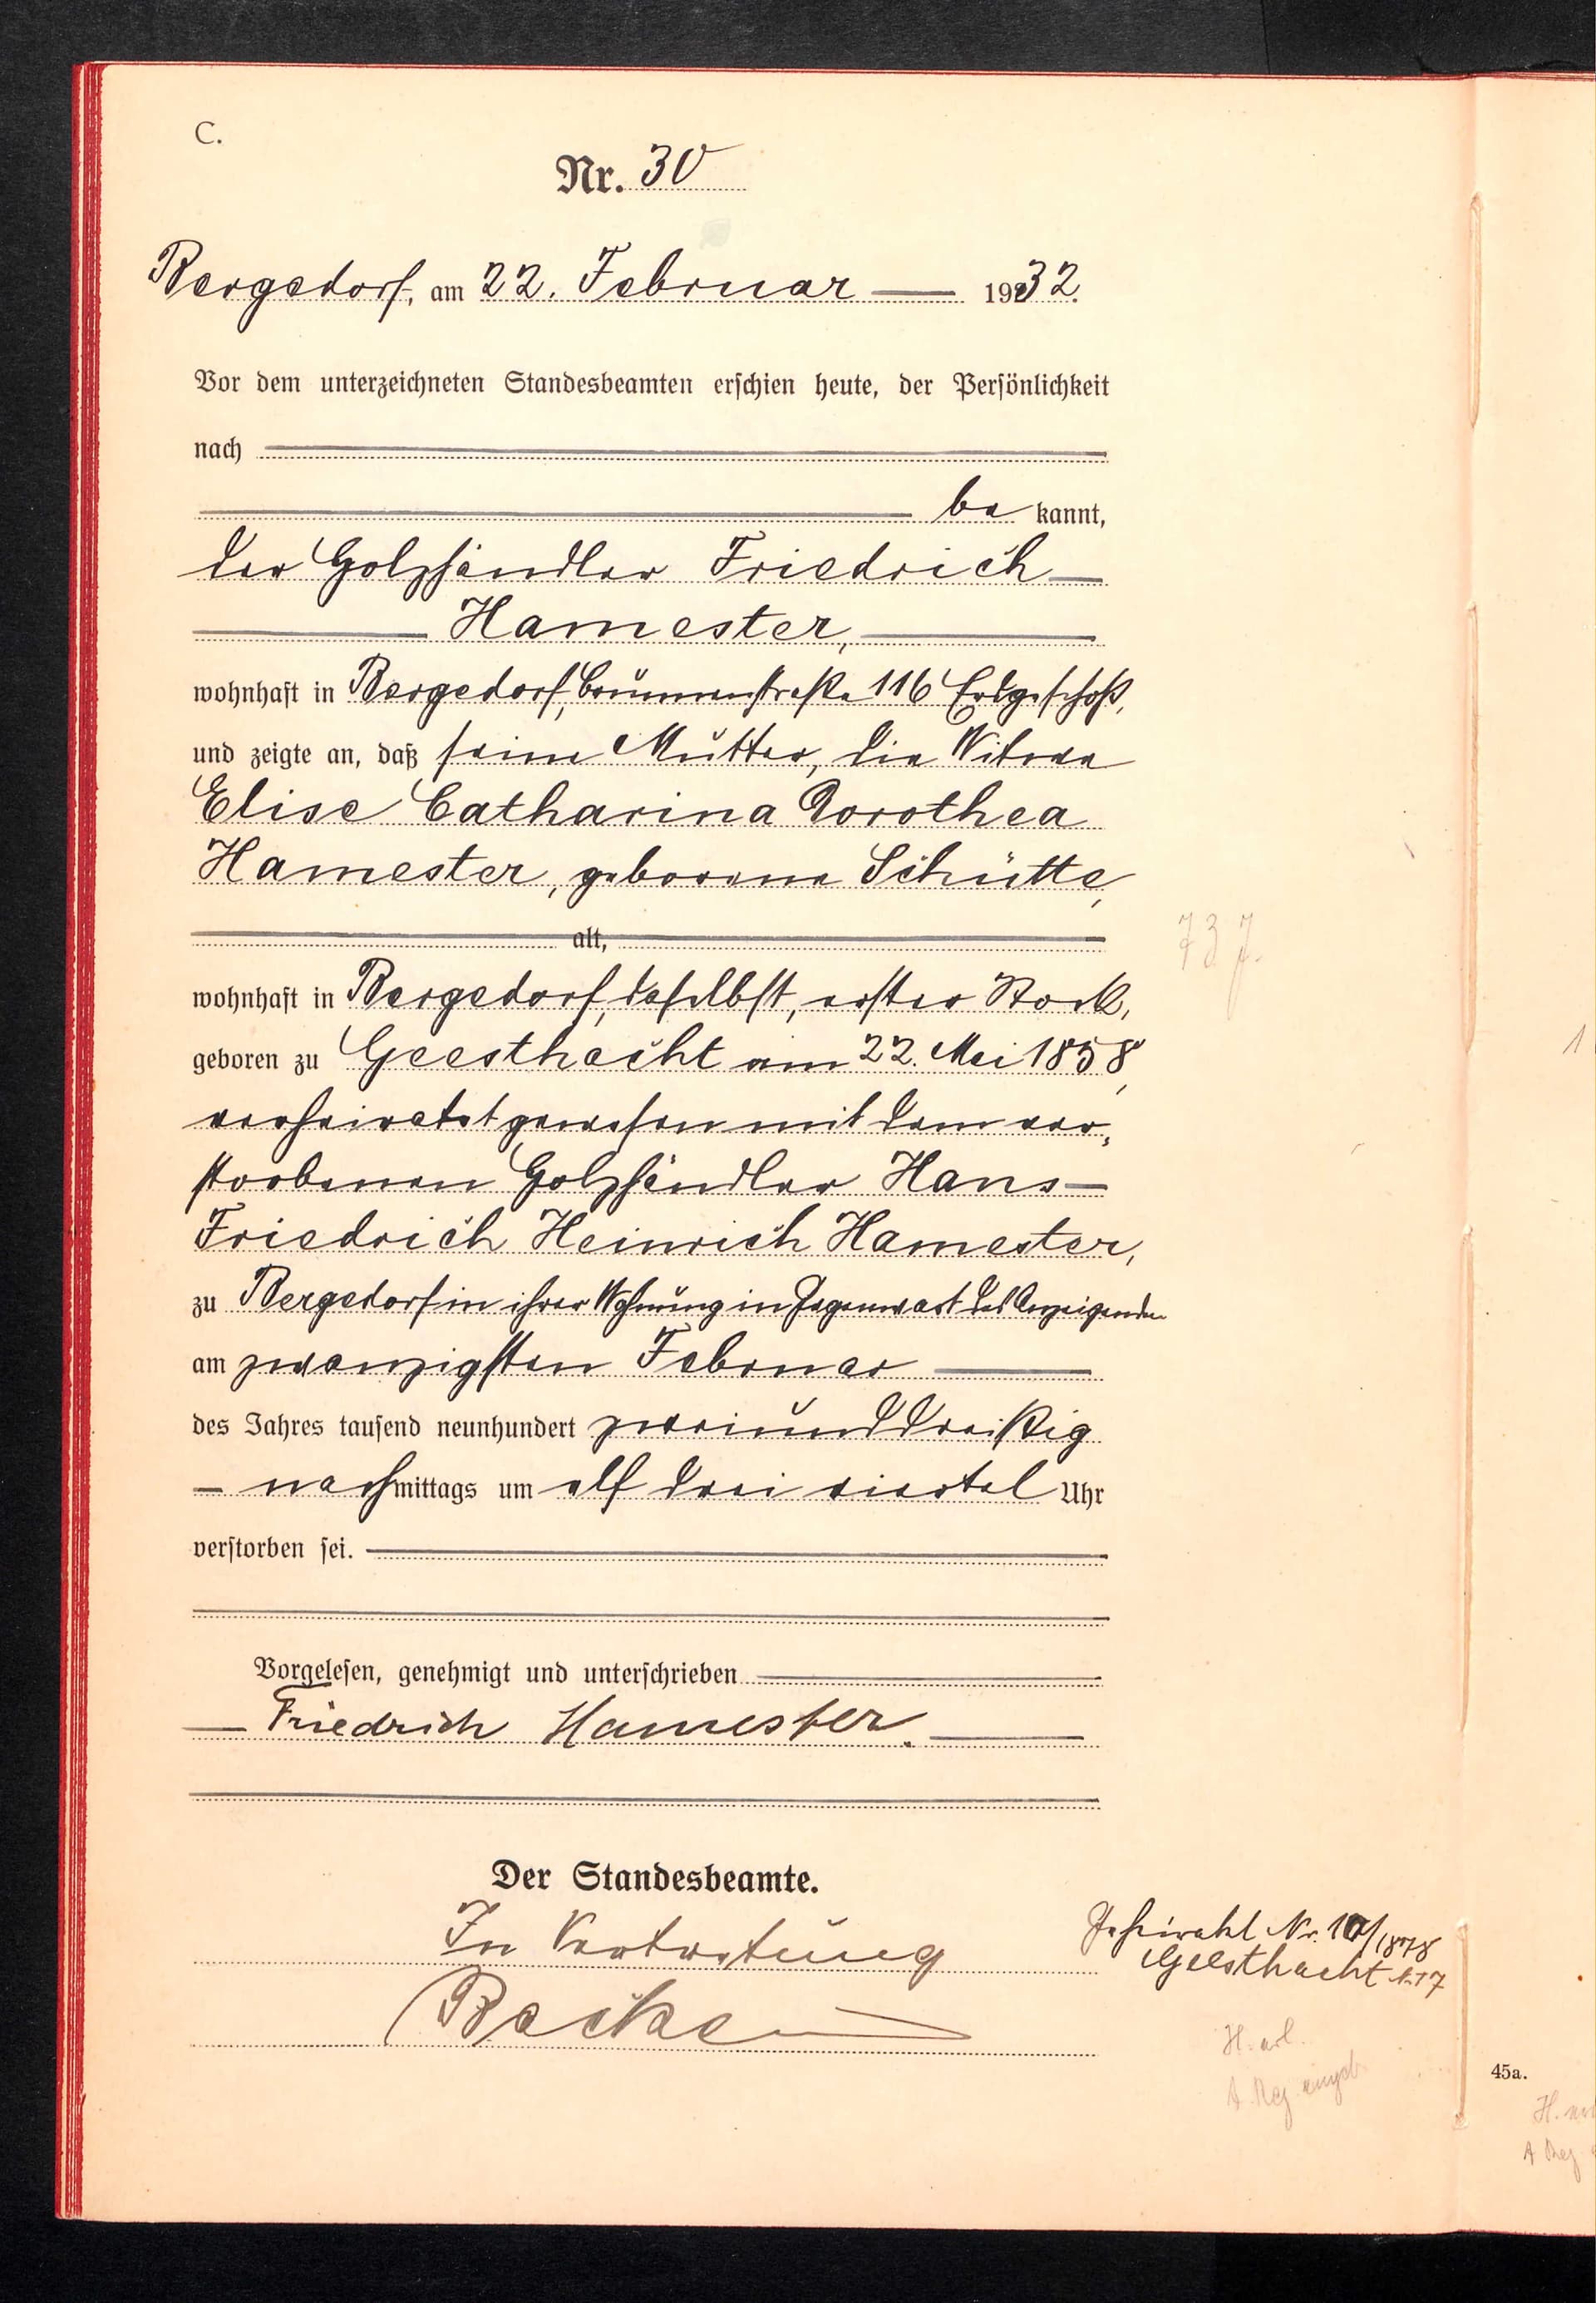 C.
Nr. 30
Bergedorf, am 22. Februar 1932.
Vor dem unterzeichneten Standesbeamten erschien heute, der Persönlichkeit
nach
be kannt,
der Holzhändler Friedrich
Hamester,
wohnhaft in Bergedorf, Brunnenstraße 116 Erdgeschoß,
und zeigte an, daß seine Mutter, die Witwe
Elise Catharina Dorothea
Hamester, geborene Schütte,
alt,
73 J.
wohnhaft in Bergedorf, daselbst, erster Stock,
geboren zu Geesthacht am 22. Mai 1858,
verheiratet gewesen mit dem ver„
storbenen Holzhändler Hans
Friedrich Heinrich Hamester,
zu Bergedorf in ihrer Wohnung in Gegenwart des Anzeigenden
am zwanzigsten Februar
des Jahres tausend neunhundert zweiunddreißig
nachmittags um elf drei viertel Uhr
verstorben sei.
Vorgelesen, genehmigt und unterschrieben
Friedrich Hamester.
Der Standesbeamte.
In Vertretung
Geheiratet Nr. /1878
Geesthacht
45a.